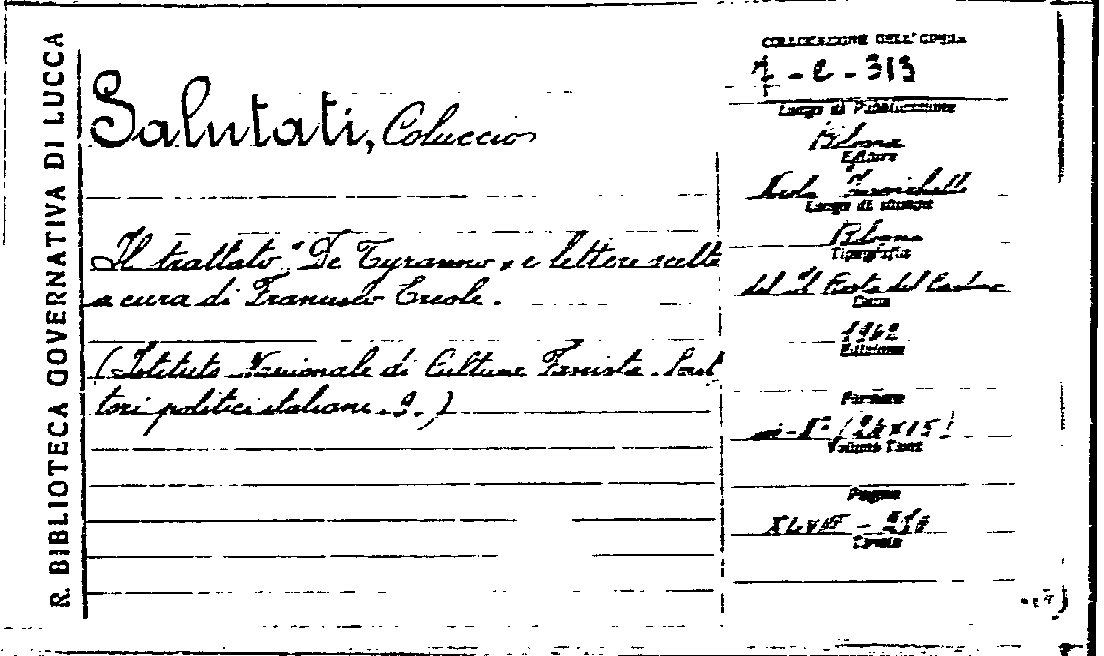 R. BIBLIOTECA GOVERNATIVA DI LUCCA
Salutati, Coluccio
Il trattato "De Tyranno" e lettere scelte
a cura di Francesco Ercole.
(Istituto Nazionale di Cultura Fascista. Scrit
tori politici italiani. 9.)
COLLOCAZIONE DELL'OPERA
7 - e - 313
Luogo di Pubblicazione
Bologna
Editore
Nicola Zanichelli
Luogo di stampa
Bologna
Tipografia
del
Data
1942
Edizione
Formato
in-8° (24x15)
Volume
Pagine
XLVIII -
Tavole